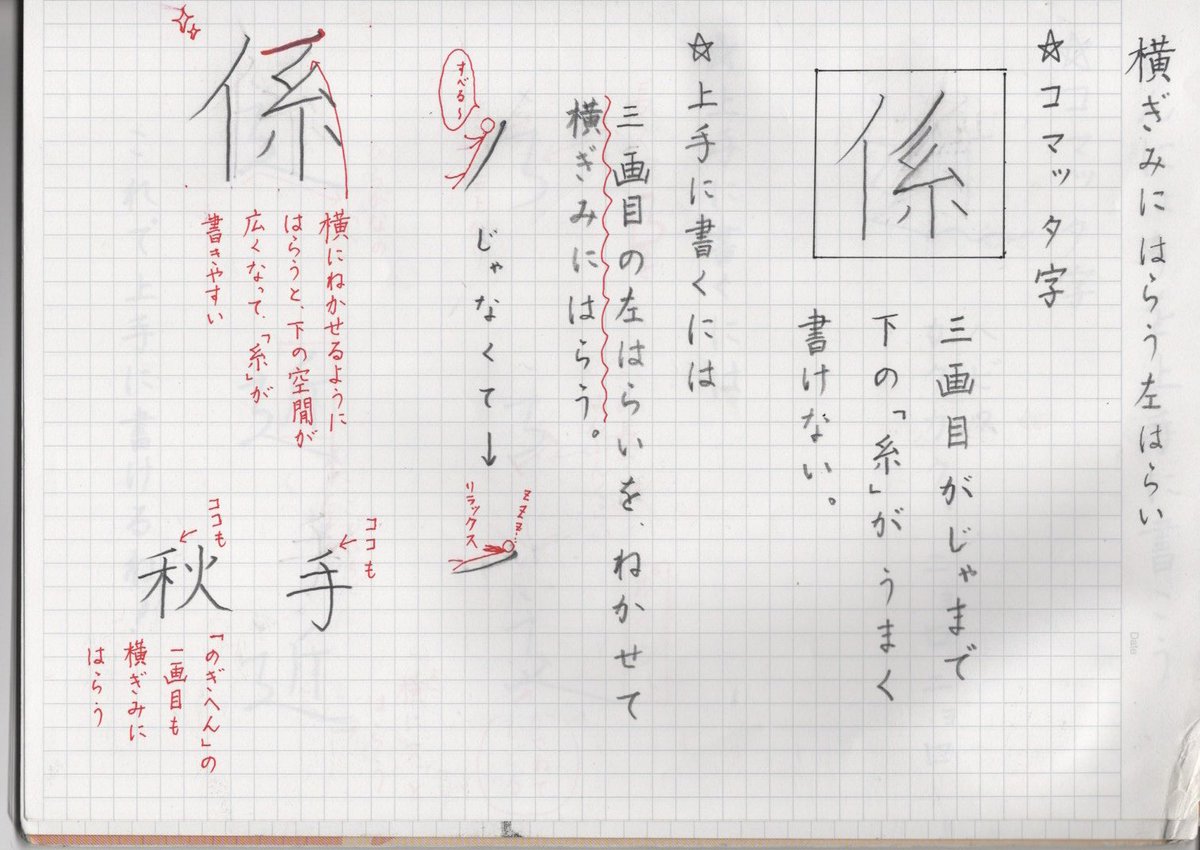 横ぎみにはらう左はらい
☆コマッタ字
係
三画目がじゃまで
下の「糸」がうまく
書けない。
☆上手に書くには
三画目の左はらいを、ねかせて
横ぎみにはらう。
すべる〜
じゃなくて↓
zzz...
リラックス
係
横にねかせるように
はらうと、下の空間が
広くなって、「糸」が
書きやすい
手
ココも
秋
ココも
「のぎへん」の
一画目も
横ぎみに
はらう
Date